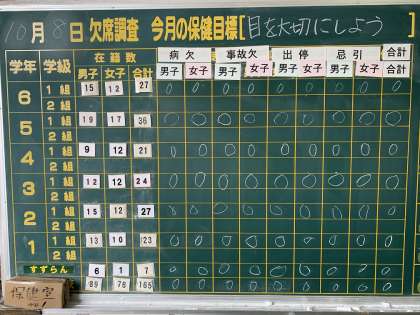 10月8日 欠席調査 今月の保健目標[目を大切にしよう]
学年 学級 在籍数 病欠 事故欠 出停 忌引 合計
男子 女子 合計 男子 女子 男子 女子 男子 女子 男子 女子 合計
6 1組 15 12 27 0 0 0 0 0 0 0 0 0
2組
5 1組 19 17 36 0 0 0 0 0 0 0 0 0
2組
4 1組 9 12 21 0 0 0 0 0 0 0 0 0
2組
3 1組 12 12 24 0 0 0 0 0 0 0 0 0
2組
2 1組 15 12 27 0 0 0 0 0 0 0 0 0
2組
1 1組 13 10 23 0 0 0 0 0 0 0 0 0
2組
すずらん 6 1 7 0 0 0 0 0 0 0 0 0
89 76 165 0 0 0 0 0 0 0 0 0
保健室